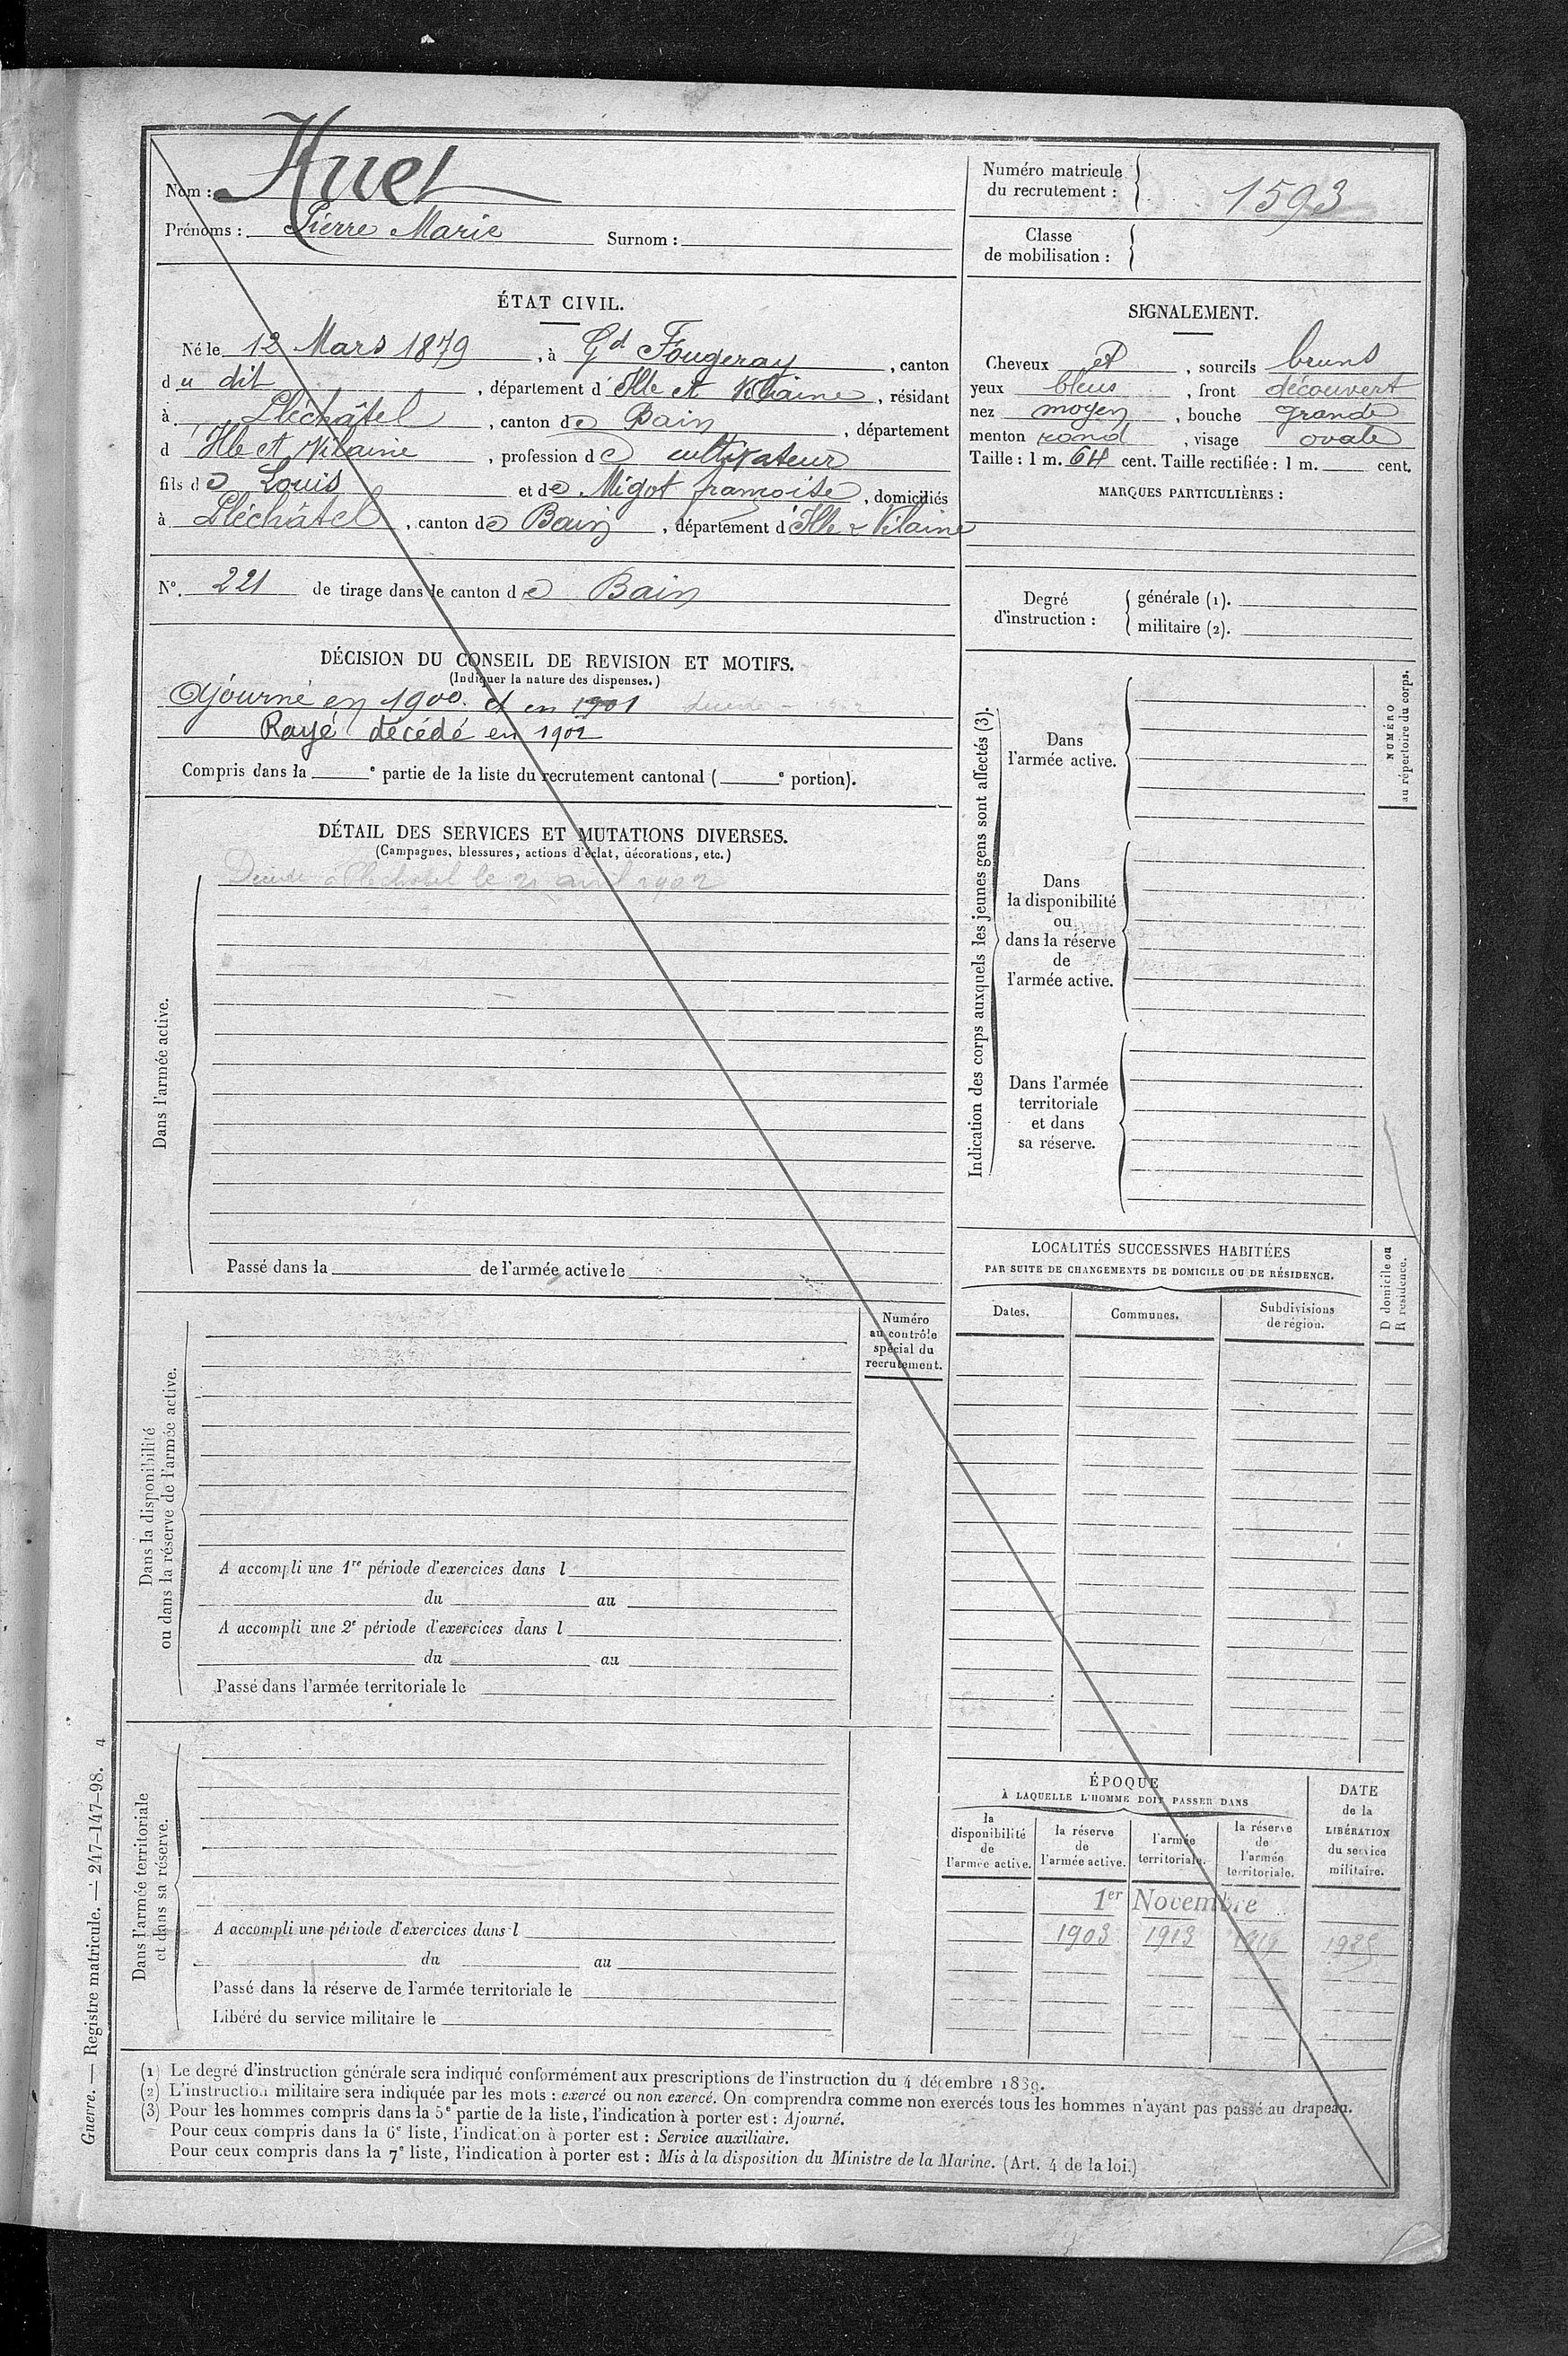 Nom : Huet
Prénoms : Pierre Marie Surnom :
Numéro matricule
du recrutement : 1593
Classe
de mobilisation :
ÉTAT CIVIL.
Né le 12 Mars 1879, à Gd Fougeray, canton
du dit, département d'Ille et Vilaine, résidant
à Pléchâtel, canton de Bain, département
d'Ille et Vilaine, profession de cultivateur
fils de Louis et de Migot françoise, domiciliés
à Pléchâtel, canton de Bain, département d'Ille & Vilaine
N°. 221 de tirage dans le canton de Bain
SIGNALEMENT.
Cheveux et, sourcils bruns
yeux bleus, front découvert
nez moyen, bouche grande
menton rond, visage ovale
Taille : 1 m. 64 cent. Taille rectifiée : 1 m. cent.
MARQUES PARTICULIÈRES :
Degré
d'instruction :
générale (1).
militaire (2).
DÉCISION DU CONSEIL DE REVISION ET MOTIFS.
(Indiquer la nature des dispenses.)
Ajourné en 1900. et en 1901
Rayé décédé en 1902
Compris dans la e partie de la liste du recrutement cantonal ( e portion).
DÉTAIL DES SERVICES ET MUTATIONS DIVERSES.
(Campagnes, blessures, actions d'éclat, décorations, etc.)
Décédé à Pléchatel le 21 avril 1902
Dans l'armée active.
Passé dans la de l'armée active le
Indication des corps auxquels les jeunes gens sont affectés (3).
Dans
l'armée active.
Dans
la disponibilité
ou
dans la réserve
de
l'armée active.
Dans l'armée
territoriale
et dans
sa réserve.
NUMÉRO
au répertoire du corps.
Dans la disponibilité
ou dans la réserve de l'armée active.
Numéro
au contrôle
spécial du
recrutement.
A accompli une 1re période d'exercices dans l
du au
A accompli une 2e période d'exercices dans l
du au
Passé dans l'armée territoriale le
LOCALITÉS SUCCESSIVES HABITÉES
PAR SUITE DE CHANGEMENTS DE DOMICILE OU DE RÉSIDENCE.
Dates.
Communes.
Subdivisions
de région.
D domicile ou
R résidence.
Dans l'armée territoriale
et dans sa réserve.
A accompli une période d'exercices dans l
du au
Passé dans la réserve de l'armée territoriale le
Libéré du service militaire le
ÉPOQUE
À LAQUELLE L'HOMME DOIT PASSER DANS
la
disponibilité
de
l'armée active.
la réserve
de
l'armée active.
l'armée
territoriale.
la réserve
de
l'armée
territoriale.
DATE
de la
LIBÉRATION
du service
militaire.
1er Novembre
1903 1913 1919 1925
(1) Le degré d'instruction générale sera indiqué conformément aux prescriptions de l'instruction du 4 décembre 1889.
(2) L'instruction militaire sera indiquée par les mots : exercé ou non exercé. On comprendra comme non exercés tous les hommes n'ayant pas passé au drapeau.
(3) Pour les hommes compris dans la 5e partie de la liste, l'indication à porter est : Ajourné.
Pour ceux compris dans la 6e liste, l'indication à porter est : Service auxiliaire.
Pour ceux compris dans la 7e liste, l'indication à porter est : Mis à la disposition du Ministre de la Marine. (Art. 4 de la loi.)
Guerre. — Registre matricule. — 247-147-98. 4